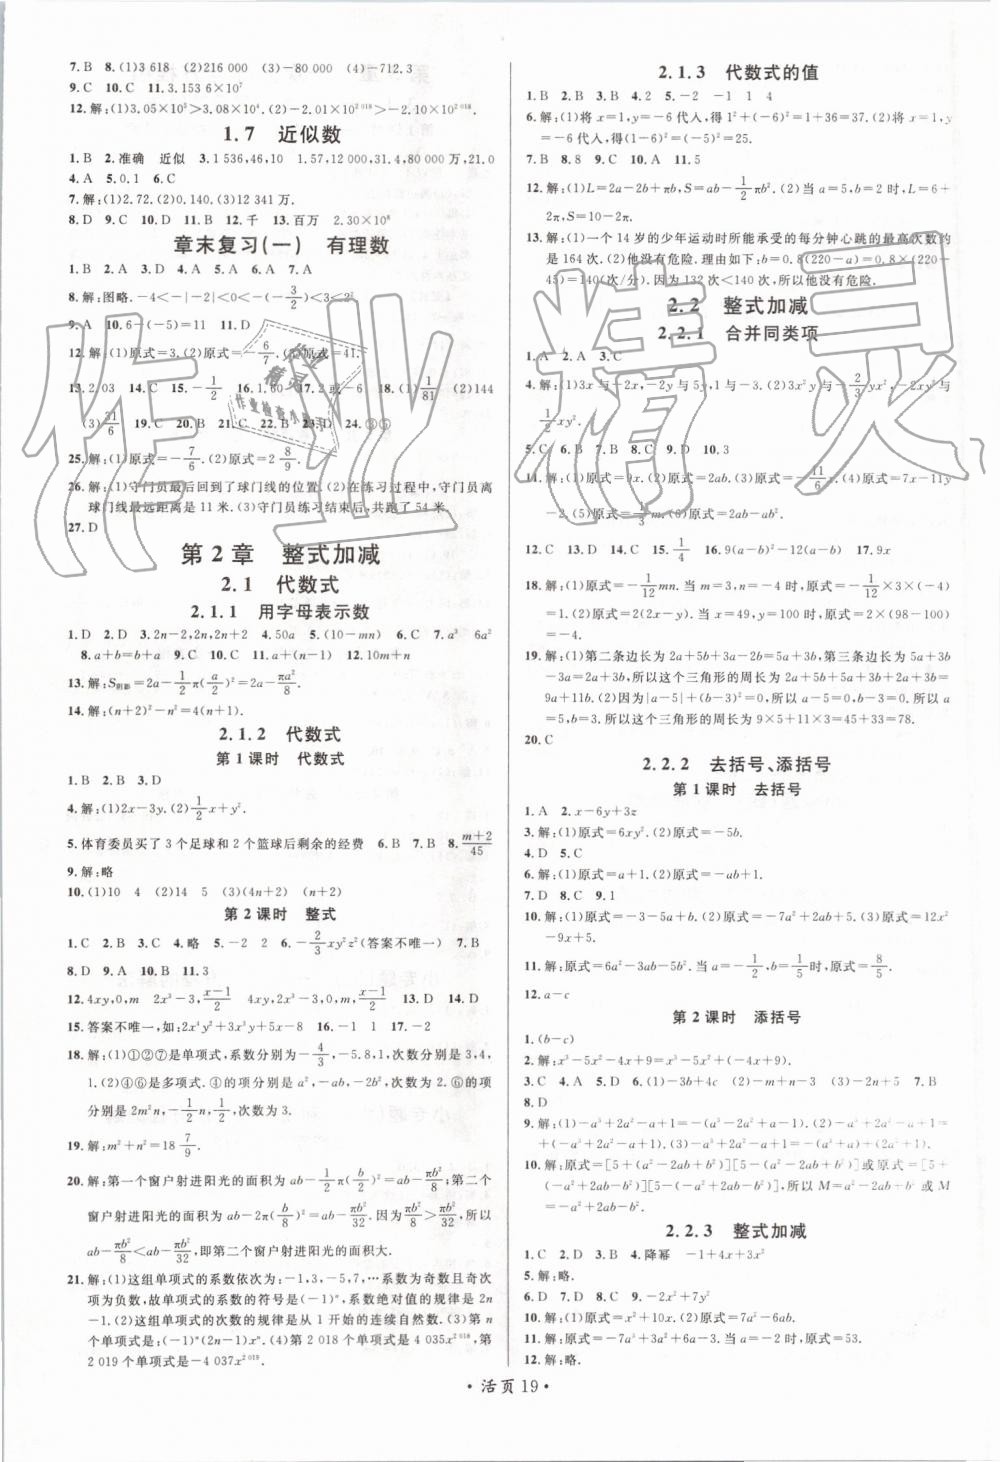 7. B　8. (1)3 618　(2)216 000　(3)－80 000　(4)－712.3
9. C　10. C　11. 3.153 6×10⁷
12. 解:(1)3.05×10⁵>3.08×10⁴. (2)－2.01×10²⁰¹⁸>－2.10×10²⁰¹⁸.
1.7　近似数
1. B　2. 准确　近似　3. 1 536,46,10　1.57,12 000,31.4,80 000 万,21.0
4. A　5. 0.1　6. C
7. 解:(1)2.72. (2)0.140. (3)12 341 万.
8. D　9. C　10. D　11. B　12. 千　13. 百万　2.30×10⁸
章末复习(一)　有理数
1. B　2. A　3. D　4. A　5. A　6. A　7. A
8. 解:图略. －4<－|－2|<0<－(－3/2)<3<
9. A　10. 6－(－5)＝11　11. D
12. 解:(1)原式＝3. (2)原式＝ (3)原式＝41.
13. 2.03　14. C　15. －1/2　16. 1.60　17. 2或－6　18. (1)1/81　(2)144
(3)31/6　19. C　20. B　21. C　22. B　23. D　24. ③⑤
25. 解:(1)原式＝－7/6. (2)原式＝2 8/9.
26. 解:(1)守门员最后回到了球门线的位置. (2)在练习过程中,守门员离
球门线最远距离是 11 米. (3)守门员练习结束后,共跑了 54 米.
27. D
第 2 章　整式加减
2.1　代数式
2.1.1　用字母表示数
1. D　2. D　3. 2n－2,2n,2n＋2　4. 50a　5. (10－m)　6. C　7. a³　6a²
8. a＋b＝b＋a　9. C　10. C　11. a＋(n－1)　12. 10m＋n
13. 解:S阴影＝2a－1/2π(a/2)²＝2a－πa²/8.
14. 解:(n＋2)²－n²＝4(n＋1).
2.1.2　代数式
第 1 课时　代数式
1. B　2. B　3. D
4. 解:(1)2x－3y. (2)1/2x＋y².
5. 体育委员买了 3 个足球和 2 个篮球后剩余的经费　6. B　7. B　8. (m＋2)/45
9. 解:略
10. (1)10　4　(2)14　5　(3)(4n＋2)　(n＋2)
第 2 课时　整式
1. C　2. B　3. C　4. 略　5. －2　2　6. －2/3xy²z²(答案不唯一)　7. B
8. D　9. D　10. B　11. 3
12. 4xy,0,m　2x³－3,(x－1)/2　4xy,2x³－3,0,m,(x－1)/2　13. D　14. D
15. 答案不唯一,如:2x⁴y²＋3x³y＋5x－8　16. －1　1　17. －2
18. 解:(1)①②⑦是单项式,系数分别是－4/3,－5.8,1,次数分别是 3,4,
1. (2)④⑥是多项式. ④的项分别是 a²,－ab,－2b²,次数是 2. ⑥的项
分别是 2m²n,－1/2n,1/2,次数为 3.
19. 解:m²＋n²＝18 7/9.
20. 解:第一个窗户射进阳光的面积是 ab－1/2π(b/2)²＝ab－πb²/8;第二个
窗户射进阳光的面积为 ab－2π(b/8)²＝ab－πb²/32. 因为πb²/8>πb²/32,所以
ab－πb²/8<ab－πb²/32,即第二个窗户射进阳光的面积大.
21. 解:(1)这组单项式的系数依次为:－1,3,－5,7,…系数为奇数且奇次
项为负数,故单项式的系数的符号是(－1)ⁿ,系数绝对值的规律是 2n
－1. (2)这组单项式的次数的规律是从 1 开始的连续自然数. (3)第 n
个单项式是:(－1)ⁿ(2n－1)xⁿ. (4)第 2 018 个单项式是 4 035x²⁰¹⁸,第
2 019 个单项式是－4 037x²⁰¹⁹.
2.1.3　代数式的值
1. B　2. B　3. B　4. 2　5. －2　－1　1　4
6. 解:(1)将 x＝1,y＝－6 代入,得 1²＋(－6)²＝1＋36＝37. (2)将 x＝1,
y＝－6 代入,得(1－6)²＝(－5)²＝25.
7. B　8. 8　9. C　10. A　11. 5
12. 解:(1)L＝2a－2b＋πb,S＝ab－1/2πb². (2)当 a＝5,b＝2 时,L＝6＋
2π,S＝10－2π.
13. 解:(1)一个 14 岁的少年运动时所能承受的每分钟心跳的最高次数约
是 164 次. (2)他没有危险. 理由如下:b＝0.8(220－a)＝0.8×(220－
45)＝140(次/分). 因为 132 次<140 次,所以他没有危险.
2.2　整式加减
2.2.1　合并同类项
1. A　2. A　3. C
4. 解:(1)3x 与－2x,－2y 与 5y,1 与－5. (2)3x²y 与－2/3yx²,－2xy²与
1/2xy².
5. C　6. B　7. B　8. C　9. D　10. 3
11. 解:(1)原式＝9x. (2)原式＝2ab. (3)原式＝－11/6 (4)原式＝7x－11y
－2. (5)原式＝1/3m. (6)原式＝2ab－ab²
12. C　13. D　14. C　15. 1/4　16. 9(a－b)²－9(a－b)　17. 9x
18. 解:(1)原式＝－1/12mn. 当 m＝3,n＝－4 时,原式＝－1/12×3×(－4)
＝1. (2)原式＝2(2x－y). 当 x＝49,y＝100 时,原式＝2×(98－100)
＝－4.
19. 解:(1)第二条边长为 2a＋5b＋3a－2b＝5a＋3b,第三条边长为 5a＋3b
－3a＝2a＋3b,所以这个三角形的周长为 2a＋5b＋5a＋3b＋2a＋3b＝
9a＋11b. (2)因为|a－5|＋(b－3)²＝0,所以 a－5＝0,b－3＝0. 所以
a＝5,b＝3. 所以这个三角形的周长为 9×5＋11×3＝45＋33＝78.
20. C
2.2.2　去括号、添括号
第 1 课时　去括号
1. A　2. x－6y＋3z
3. 解:(1)原式＝6xy². (2)原式＝－5b.
4. D　5. C
6. 解:(1)原式＝1. (2)原式＝－ab＋1.
7. D　8. C　9. 1
10. 解:(1)原式＝－3－5a＋b. (2)原式＝－7a²＋2ab. (3)原式＝12x²
－9x－9.
11. 解:原式＝6a²－3ab－5b². 当 a＝－1/2,b＝1/2时,原式＝8/5.
12. a－c
第 2 课时　添括号
1. (b－c)
2. 解:x³－5x²－4x＋9＝x³－(5x²＋4x－9).
3. C　4. A　5. D　6. (1)－3b＋4c　(2)－m＋2n　(3)－2n＋5　7. B
8. D
9. 解:(1)－a³＋2a²－a＋1＝－(－a³－2a²＋a－1). (2)－a³＋2a²－a＋1
＝＋(－a³＋2a²－a＋1). (3)－a³＋2a²－a＋1＝－(a³＋a)＋(2a²＋1).
10. 解:原式＝[5＋(a²－2ab＋b²)][5－(a²－2ab＋b²)]或原式＝[5＋
(－a²＋2ab－b²)][5－(－a²＋2ab－b²)],所以 M＝a²－2ab＋b²或
M＝－a²＋2ab－b².
2.2.3　整式加减
1. C　2. D　3. B　4. 降幂　－1＋4x＋3x²
5. 解:略.
6. D　7. D　8. C　9. －2x²＋7y²
10. 解:(1)原式＝x²＋10x. (2)原式＝7a²－6ab.
11. 解:原式＝－7a³＋3a²－4a－11. 当 a＝－2 时,原式＝53.
12. 解:略.
· 活页 19 ·
作业精灵
作业检查小